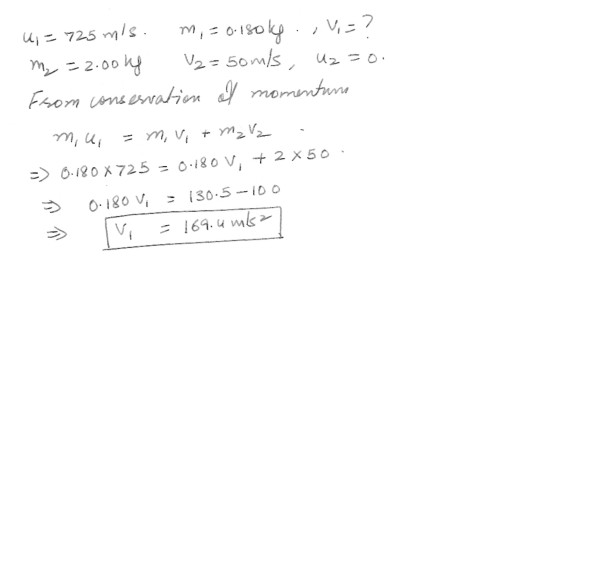 u₁ = 725 m/s. m₁ = 0.180 kg., V₁ = ?
m₂ = 2.00 kg V₂ = 50 m/s, u₂ = 0.
From conservation of momentum
m₁u₁ = m₁V₁ + m₂V₂
⇒ 0.180 × 725 = 0.180 V₁ + 2 × 50.
⇒ 0.180 V₁ = 130.5 - 100
⇒ V₁ = 169.4 m/s²